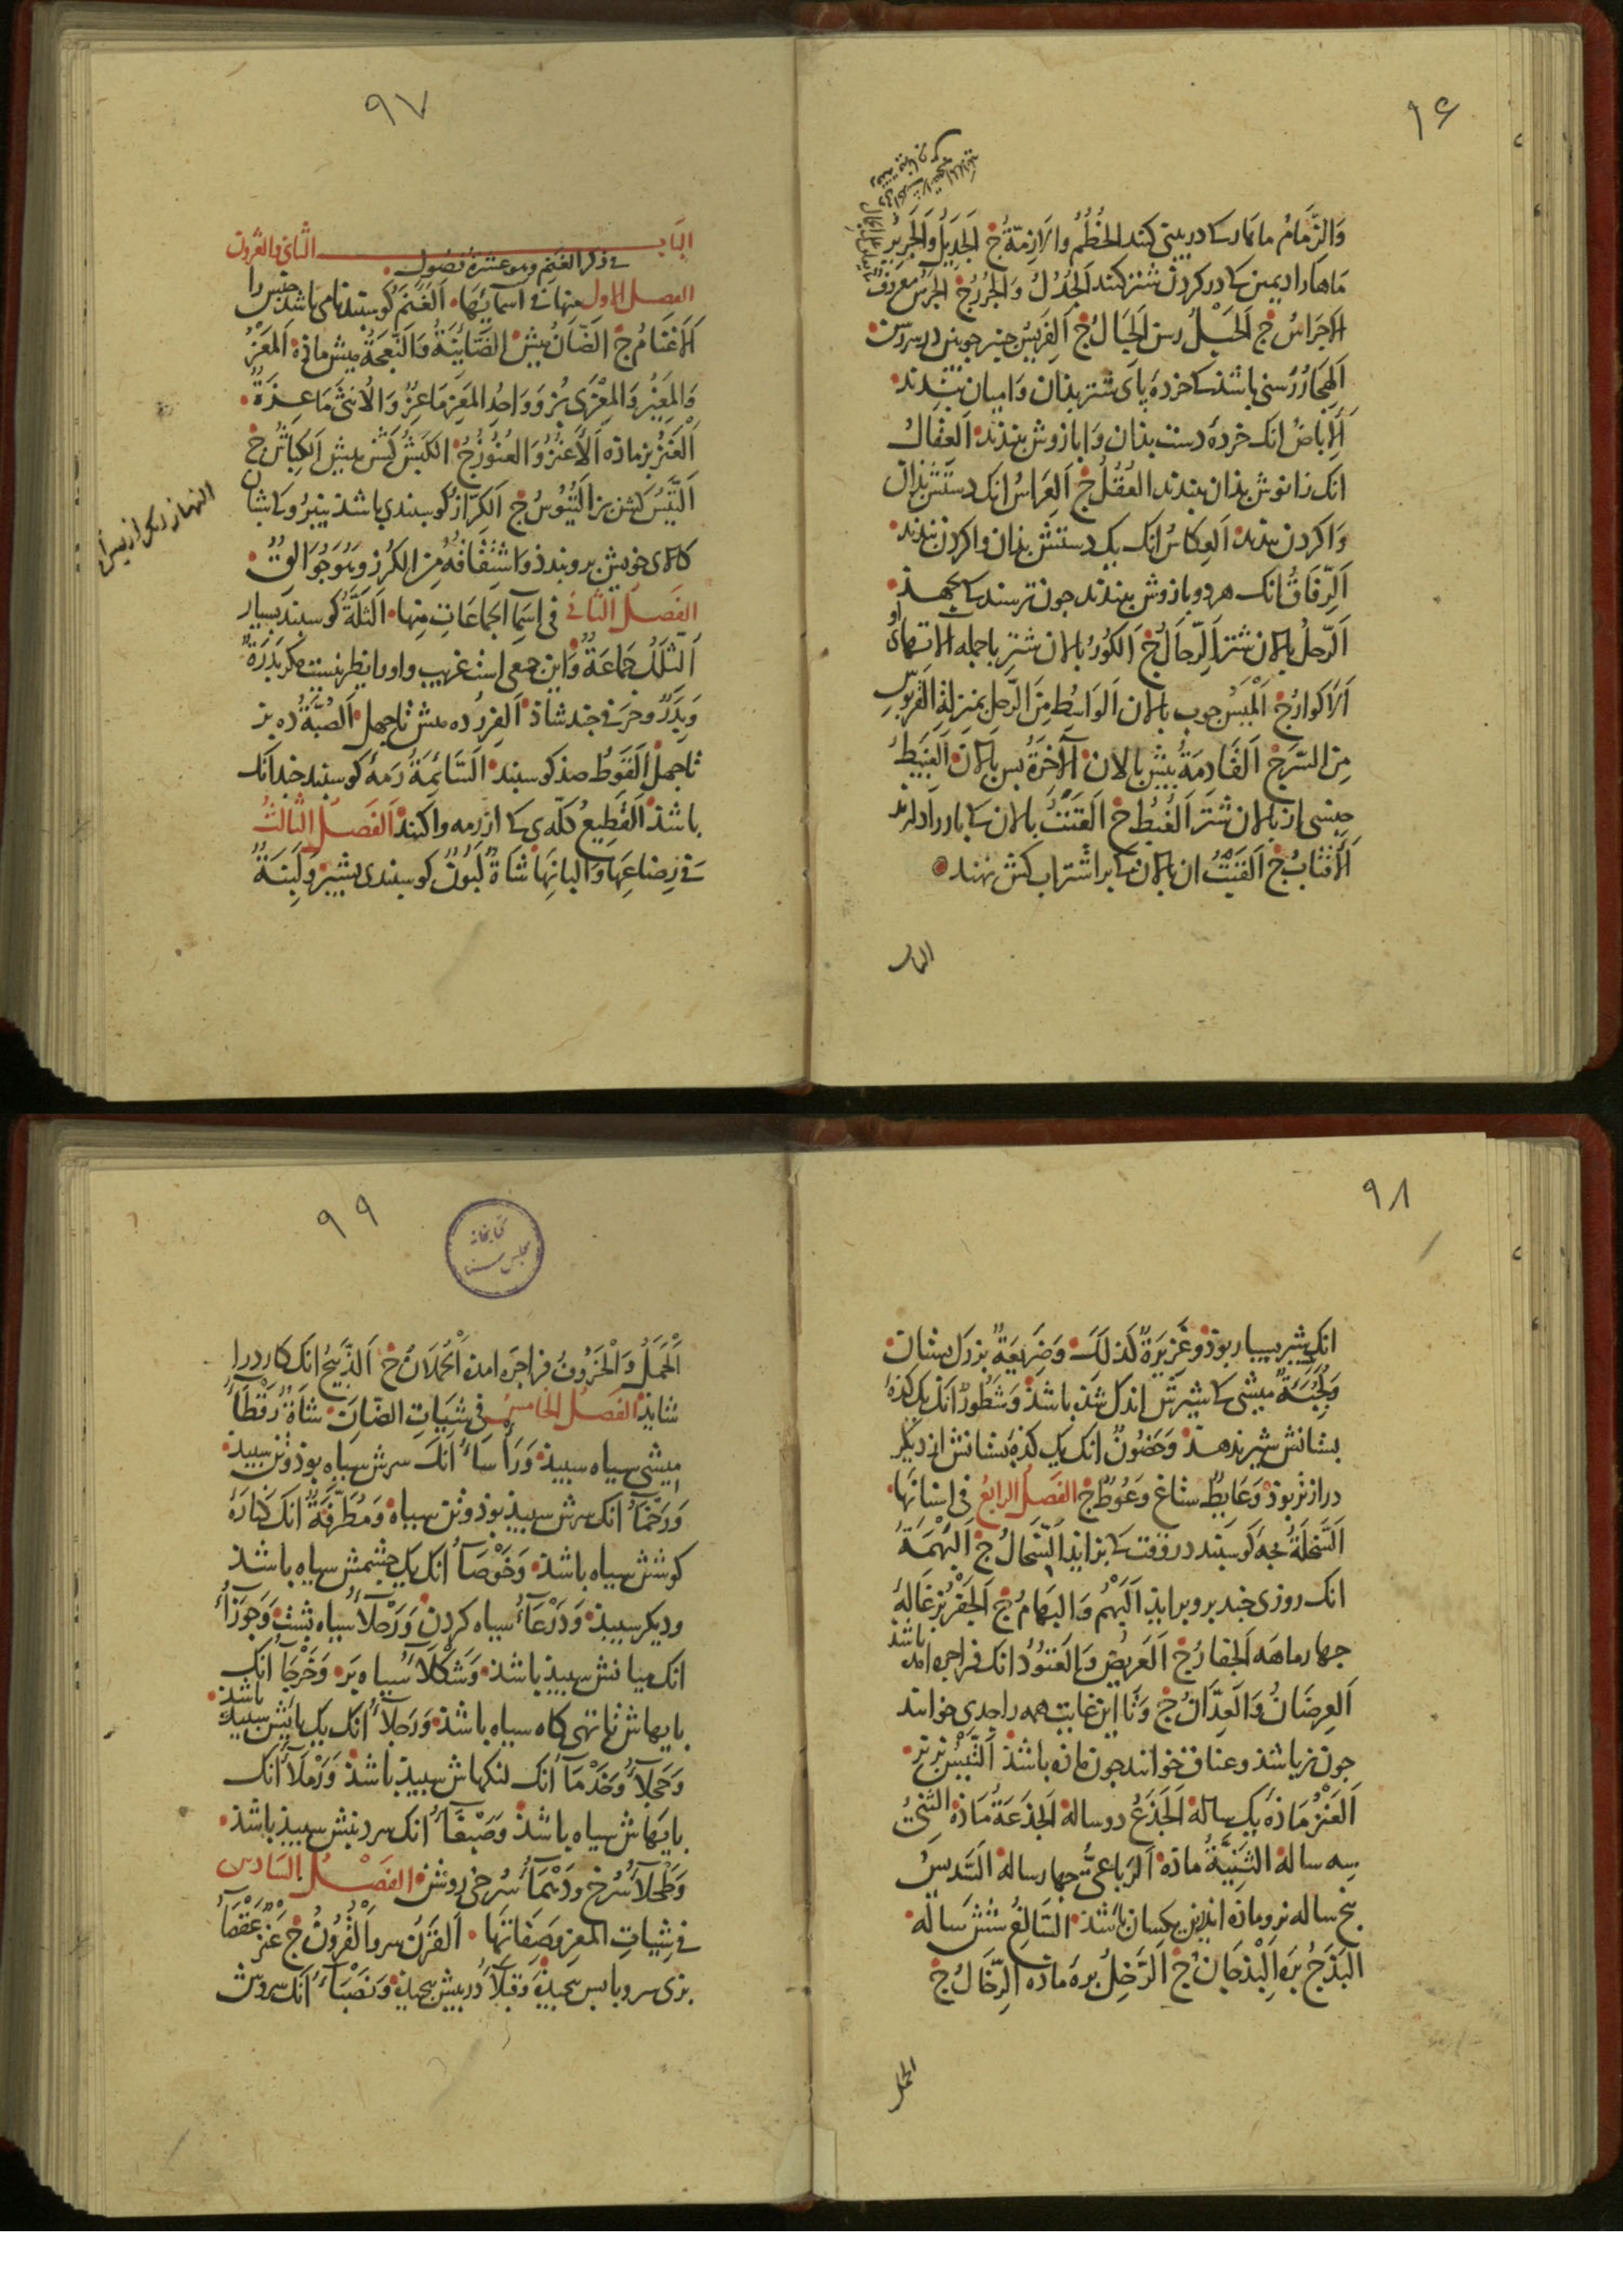 ۹۶
وَالزِّمَامُ ماهار کے در بینی کنند الخُطُمُ والاَزِمّةُ ج الجَدِيلُ وَالجَرِيْرُ
مَاهار ادیمین کے در کردن شتر کنند اَلجُدُلُ وَالجُرُرُ ج الجَرَسُ معروفٌ
الاَجرَاسُ ج اَلحَبْلُ رسن الحِبَالُ ج
اَلهِجَارُ رَسنی باشذ کے خردهٔ پای شتر بذان وامیان بندند
اَلْاِبَاضُ انک خردهٔ دست بذان وابازوش بندند اَلعِقَالُ
انک زانوش بذان بندند العُقُلُ ج اَلعِرَاسُ انک دستش بذان
وَاکردن بندند اَلعِکَاسُ انک یک دستش بذان واکردن بندند
اَلرِّفَاقُ انک هر دو بازوش ببندند جون ترسند کے بجهذ
اَلرَّحلُ بالان شتر اَلرِّحَالُ ج اَلکُوْرُ بالان شتر با جمله الاتهای او
اَلاَکوَارُ ج اَلْمَیْسُ جوب بالان اَلوَاسُِط مِنَ الرَّحلِ بمنزلةِ القَربُوسِ
مِنَ السَّرجِ اَلقَادِمَةُ بیش بالان اَلآخِرَةُ بس بالان اَلغَبِیْطُ
جنسی از بالان شتر اَلغُبُطُ ج اَلقَتَبُ بالان کے بار را دارند
اَلاَقتَابُ ج اَلقِتْبُ ان بالان کے بر اشتر اب کش نهند
الباب
۹۷
البَاب الثَّانِی والعُشرون
فی ذکر الغَنَمِ وهو عشرةُ فصُولٍ
الفصل الاول منها فی اسمائِهَا اَلْغَنَمُ کوسبند نامی باشذ جنس را
اَلاَغنَامُ ج اَلضَّأنُ میش الضَّائِنَةُ وَالنَّعجَةُ میش ماذه اَلمَعْزُ
وَالمَعِیْزُ وَالمِعْزَی بُز وَوَاحِدُ المَعْزِ مَاعِزٌ وَالاُنثَی مَاعِزَةٌ
اَلْعَنْزُ بز ماذه اَلاَعنُزُ وَالعُنُوْزُ ج الکَبْشُ کَشن میش اَلکِبَاشُ ج
اَلتَّیْسُ کَشن بز اَلتُّیُوْسُ ج اَلکَرَّازُ کوسبندی باشذ
کالای خویش برو بندذ وَاشتِقَاقُهُ مِنَ الکُرْزِ وَهُوَ جُوَالِقٌ
النهاز دیگر
الفَصلُ الثَّانی فی اسمَآ الجَمَاعَاتِ مِنها اَلثَّلَّةُ کوسبند بسیار
اَلثِّلَلُ جَمَاعَةٌ وَاین جمعی است غریب واورا نظیر نیست مکر بَدْرَةٌ
وَبِدَرٌ وحَرفی جند شاذ اَلفِزْرُ ده میش تا جهل اَلصُّبَّةُ ده بز
تا جهل اَلقَوْطُ صذ کوسبند اَلسَّائِمَةُ رَمهٔ کوسبند جندانک
باشذ اَلقَطِیْعُ کلّه‌ی کے از رمه واکنند اَلفَصلُ الثَّالثُ
فی رِضَاعِهَا وَالبَانِهَا شَاةٌ لَبُونٌ کوسبندی بشیر وَلَبِنَةٌ
۹۸
انک شیر بسیار بوذ وَغَزِیرَةٌ کَذلِکَ وَضَرِیْعَةٌ بزرک بستان
وَلَجْبَةٌ میشی کے شیرش اندک شذه باشذ وَشَطُورٌ انک یک کذهٔ
بستانش شیر ندهذ وَحَضُونٌ انک یک کذهٔ بستانش از دیکر
درازتر بوذ وَعَائِطٌ ستاغ وَعُوطٌ ج الفَصلُ الرابعُ فی اسنانِهَا
اَلسَّخلَةُ بجهٔ کوسبند در وقت کے بزاید اَلسِّخَالُ ج اَلبَهْمَةُ
انک روزی جند برو براید اَلبَهْمُ وَالبِهَامُ ج اَلجَفْرُ بزغالهٔ
جهار ماهَه اَلجِفَارُ ج اَلعَرِیْضُ وَالعَتُوْدُ انک فراجره امذه باشذ
اَلعِرضَانُ وَالعِدَّانُ ج وَتَا این غایت همه را جدی خوانند
جون نر باشذ وعناق خوانند جون ماذه باشذ اَلتَّیْسُ بز نر
اَلعَنْزُ مَاذه یک ساله اَلجَذَعُ دو ساله اَلجَذَعَةُ مَاذه الثَّنِیُّ
سه ساله الثَّنِیَّةُ ماذه اَلرَّبَاعِیُّ جهار ساله السَّدِیسُ
بنج ساله نر وماذه اندرین یکسان باشذ السَّالِغُ شش سَاله
اَلبَذَجُ بَره اَلبِذْجَانُ ج اَلرَّخِلُ برهٔ ماذه اَلرِّخَالُ ج
الحمل
۹۹
کتابخانه
مجلس سنا
اَلْحَمَلُ وَالْخَرُوفُ فراجره امذه اَلْحُمْلَانُ ج اَلذَّبِیْحُ انک کارد را
شاید الفصلُ الخامسُ فی شِیَاتِ الضّأنِ شَاةٌ رَقطَآءُ
میشی سیاه سبیذ وَرَأسَآءُ انک سرش سیاه بوذ وتن سبیذ
وَرَخمَآءُ انک سرش سبیذ بوذ وتن سیاه وَمُطَرَّفَةٌ انک کنارهٔ
کوشش سیاه باشذ وَخَوْصَآءُ انک یک جشمش سیاه باشذ
ودیکر سبیذ وَدَرْعَآءُ سیاه کردن وَرَحْلَآءُ سیاه بشت وَجَوزَآءُ
انک میانش سبیذ باشذ وَشَکلَآءُ سیاه بَر وَخَرْجَآءُ انک
بایهاش تا تهی کاه سیاه باشذ وَرَجلَآءُ انک یک بایش سبید باشذ
وَحَجلَآءُ وَخَدْمَآءُ انک لنکهاش سبیذ باشذ وَرَمْلَآءُ انک
بایهَاش سیاه باشذ وَصَبْغَآءُ انک سر دنبش سبیذ باشذ
وَطَحْلَآءُ سُرخ ودَهْمَآءُ سُرخی روشن الفَصْلُ السَّادس
فی شِیَاتِ المَعزِ وصِفَاتِهَا اَلقَرْنُ سرو اَلْقُرُونُ ج عَنْزٌ عَقْصَآءُ
بزی سرو با بس بیجیذه وَقَبلَآءُ در بیش بیجیذه وَنَصْبَآءُ انک سروش